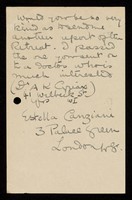 Would you be so very
kind as send me
another report of the
Retreat. I passed
the one you sent on
to a doctor who is
much interested
(Dr A K
Yrs
Estella Canziani
3 Palace Green
London W8.